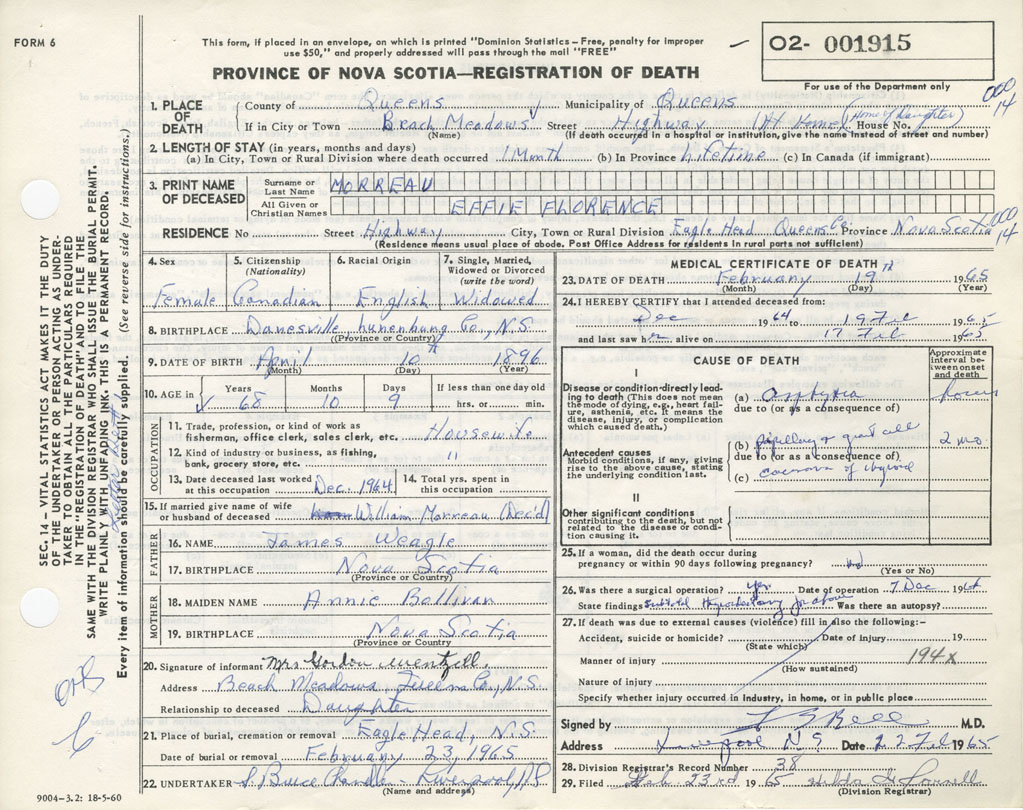 FORM 6
This form, if placed in an envelope, on which is printed "Dominion Statistics – Free, penalty for improper
use $50," and properly addressed will pass through the mail "FREE"
02- 001915
For use of the Department only
PROVINCE OF NOVA SCOTIA—REGISTRATION OF DEATH
000
14
1. PLACE OF DEATH County of Queens Municipality of Queens
If in City or Town Beach Meadows Street Highway (At Home) (Home of Daughter) House No.
(Name) (If death occurred in a hospital or institution, give its name instead of street and number)
2. LENGTH OF STAY (in years, months and days)
(a) In City, Town or Rural Division where death occurred 1 Month (b) In Province Lifetime (c) In Canada (if immigrant)
3. PRINT NAME OF DECEASED Surname or Last Name MORREAU
All Given or Christian Names EFFIE FLORENCE
RESIDENCE No Street Highway City, Town or Rural Division Eagle Head Queens Co Province Nova Scotia 000 14
(Residence means usual place of abode. Post Office Address for residents in rural parts not sufficient)
4. Sex 5. Citizenship (Nationality) 6. Racial Origin 7. Single, Married, Widowed or Divorced (write the word)
Female Canadian English Widowed
8. BIRTHPLACE Danesville, Lunenburg Co., N.S.
(Province or Country)
9. DATE OF BIRTH April 10th 1896
(Month) (Day) (Year)
10. AGE in Years Months Days If less than one day old
68 10 9 hrs. or min.
OCCUPATION
11. Trade, profession, or kind of work as fisherman, office clerk, sales clerk, etc. Housewife
12. Kind of industry or business, as fishing, bank, grocery store, etc. "
13. Date deceased last worked at this occupation Dec. 1964 14. Total yrs. spent in this occupation
15. If married give name of wife or husband of deceased William Morreau (Dec'd)
FATHER
16. NAME James Weagle
17. BIRTHPLACE Nova Scotia
(Province or Country)
MOTHER
18. MAIDEN NAME Annie Bollivar
19. BIRTHPLACE Nova Scotia
(Province or Country
20. Signature of informant Mrs Gordon Wentzell.
Address Beach Meadows, Queens Co., N.S.
Relationship to deceased Daughter
21. Place of burial, cremation or removal Eagle Head, N.S.
Date of burial or removal February 23, 1965
22. UNDERTAKER Bruce Chandler - Liverpool, N.S.
(Name and address)
9004–3.2: 18-5-60
MEDICAL CERTIFICATE OF DEATH
23. DATE OF DEATH February 19th 1965
(Month) (Day) (Year)
24. I HEREBY CERTIFY that I attended deceased from:
Dec 1964 to 19 Feb 1965
and last saw her alive on 17 Feb 1965
CAUSE OF DEATH
Approximate interval between onset and death
I
Disease or condition directly leading to death (This does not mean the mode of dying, e.g., heart failure, asthenia, etc. It means the disease, injury, or complication which caused death.)
(a) Asphyxia hours
due to (or as a consequence of)
Antecedent causes
Morbid conditions, if any, giving rise to the above cause, stating the underlying condition last.
(b) papillary & giant cell 2 mo.
due to (or as a consequence of)
(c) carcinoma of thyroid
II
Other significant conditions contributing to the death, but not related to the disease or condition causing it.
25. If a woman, did the death occur during pregnancy or within 90 days following pregnancy? No
(Yes or No)
26. Was there a surgical operation? yes Date of operation 7 Dec 1964
State findings Subtotal Was there an autopsy?
27. If death was due to external causes (violence) fill in also the following:–
Accident, suicide or homicide? Date of injury 19
(State which)
Manner of injury 194X
(How sustained)
Nature of injury
Specify whether injury occurred in industry, in home, or in public place
Signed by Bell M.D.
Address Liverpool N.S Date 22 Feb 1965
28. Division Registrar's Record Number 38
29. Filed Feb 23rd 1965 Hilda
(Division Registrar)
SEC. 14 – VITAL STATISTICS ACT MAKES IT THE DUTY
OF THE UNDERTAKER OR PERSON ACTING AS UNDER-
TAKER TO OBTAIN ALL THE PARTICULARS REQUIRED
IN THE "REGISTRATION OF DEATH" AND TO FILE THE
SAME WITH THE DIVISION REGISTRAR WHO SHALL ISSUE THE BURIAL PERMIT.
WRITE PLAINLY WITH UNFADING INK. THIS IS A PERMANENT RECORD.
Every item of information should be carefully supplied. (See reverse side for instructions.)